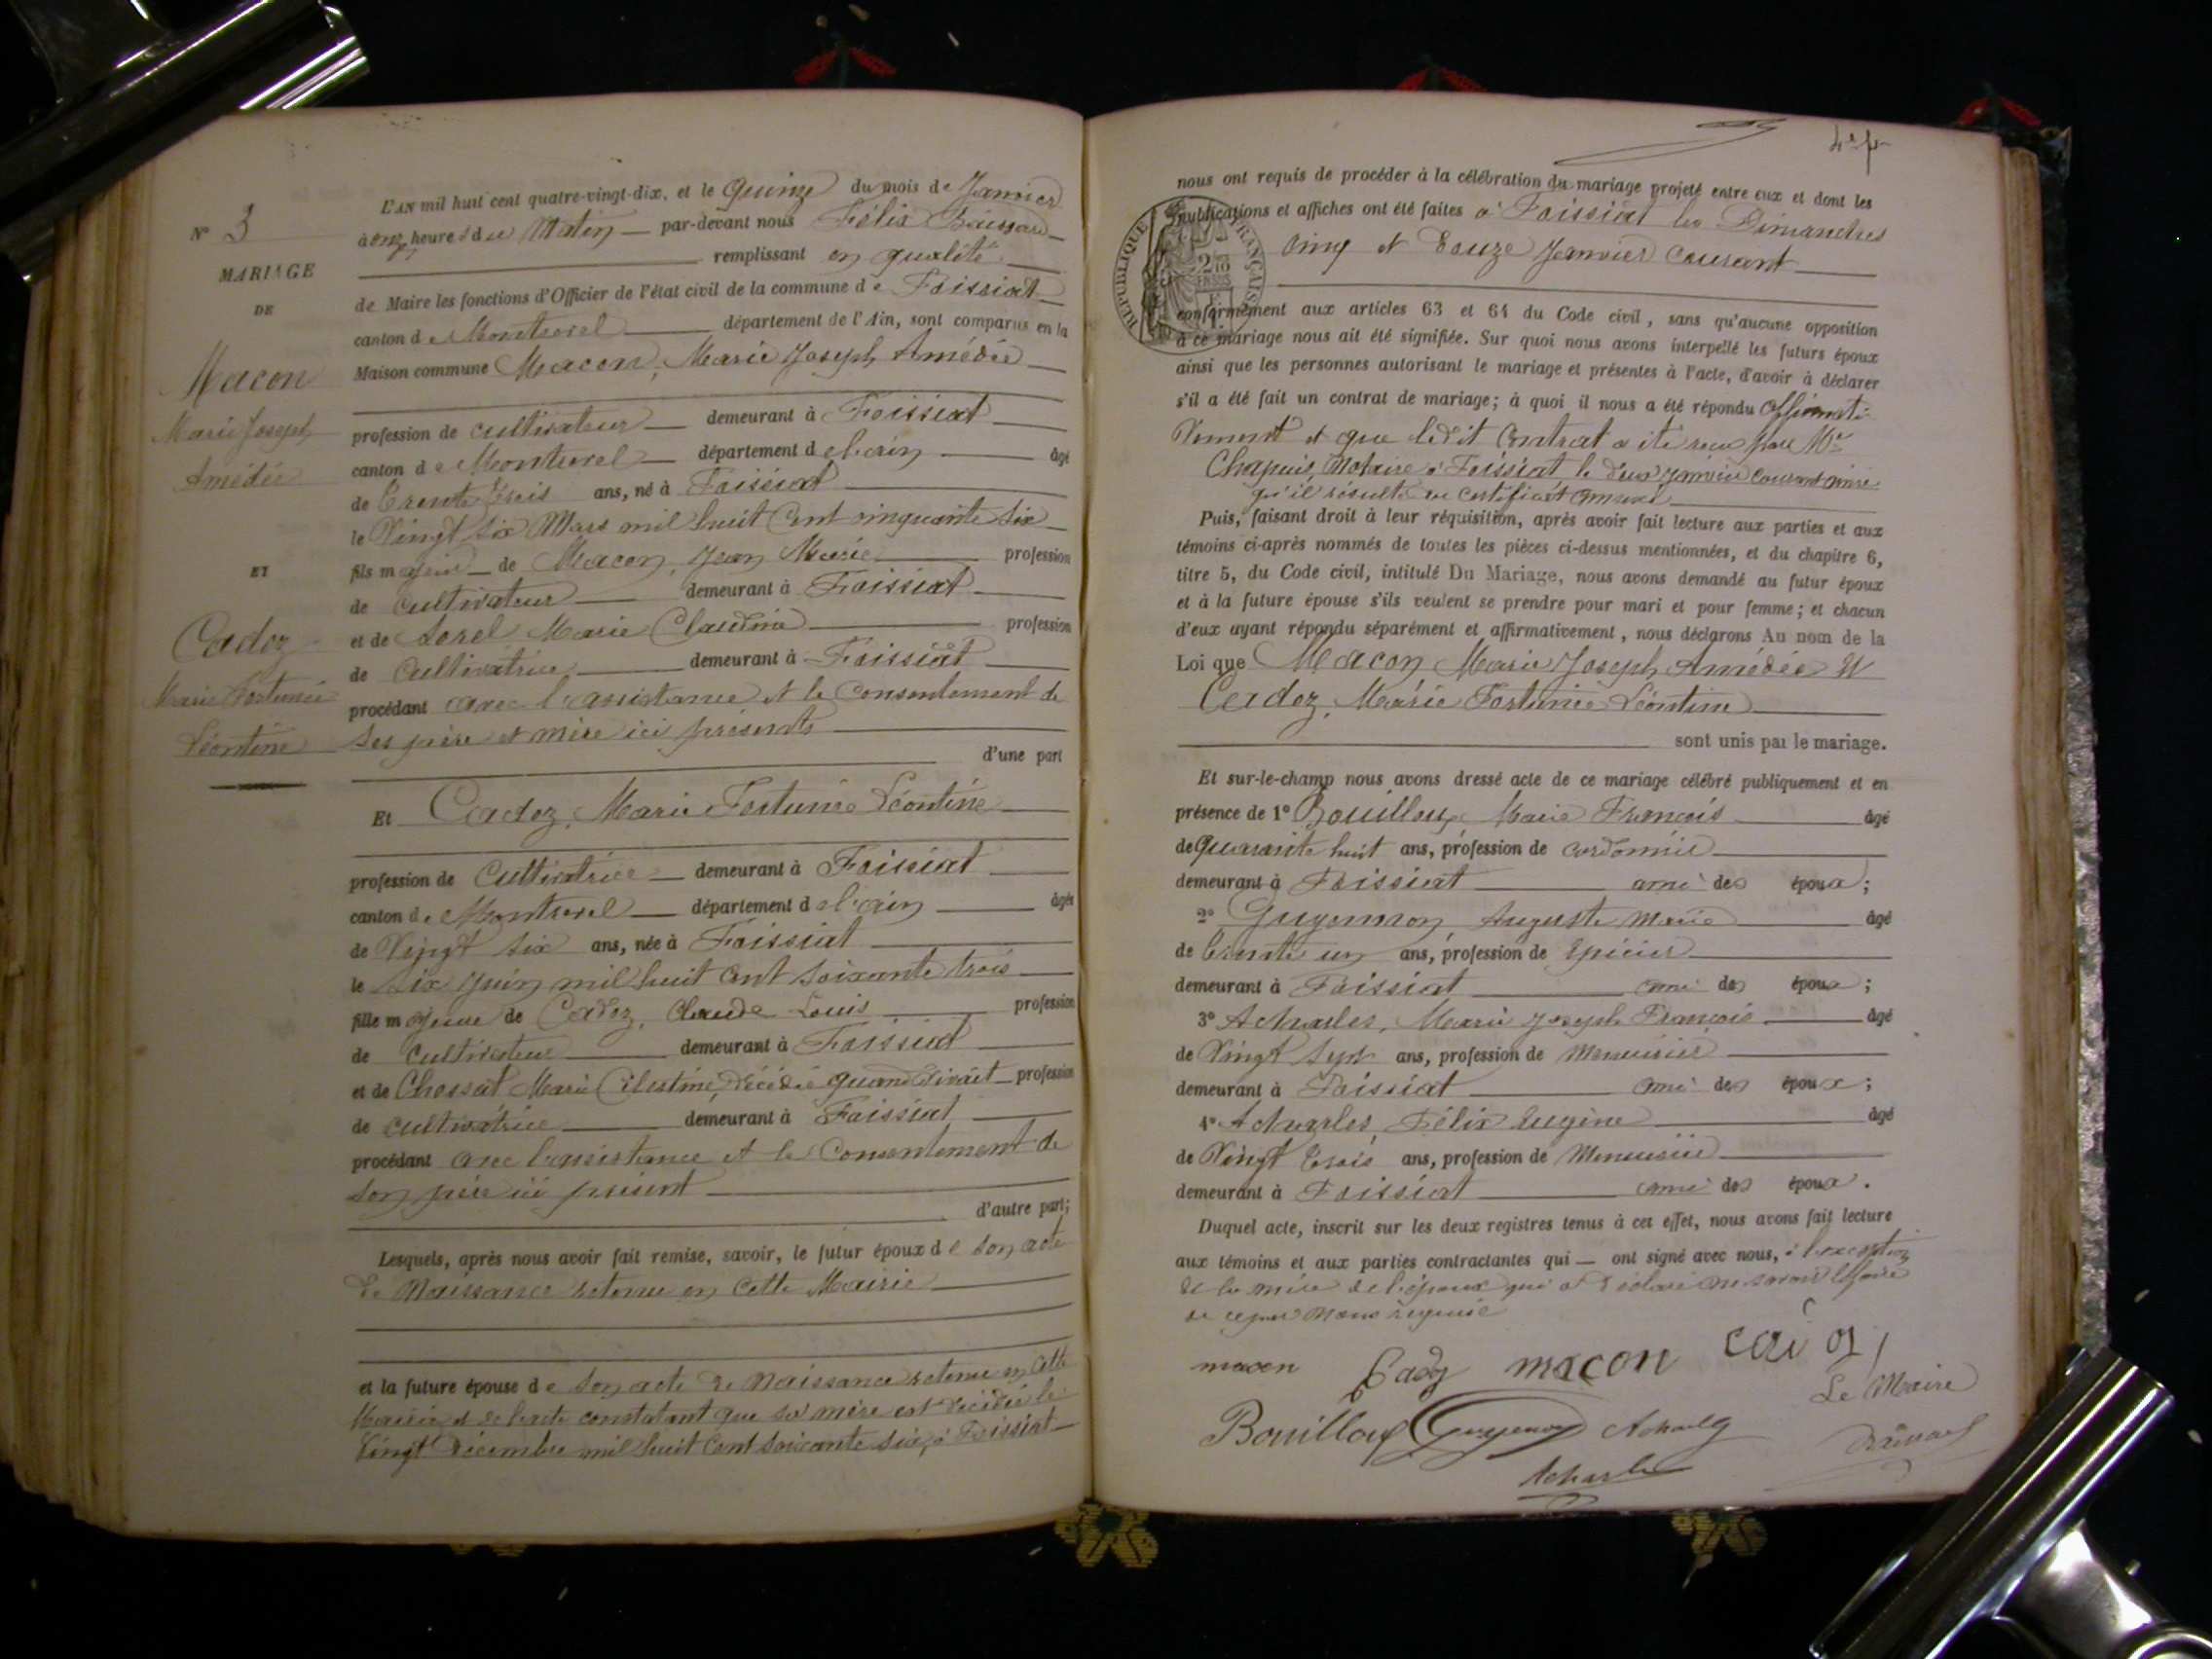 N° 3
MARIAGE
DE
Macon
Marie Joseph
Amédée
ET
Cadoz
Marie Fortunée
Léontine
L'AN mil huit cent quatre-vingt-dix, et le quinze du mois de Janvier
à onze heures du Matin — par-devant nous Félix
remplissant en qualité
de Maire les fonctions d'Officier de l'état civil de la commune de Foissiat
canton de Montrevel département de l'Ain, sont comparus en la
Maison commune Macon, Marie Joseph Amédée
profession de cultivateur demeurant à Foissiat
canton de Montrevel département de l'ain âgé
de trente trois ans, né à Foissiat
le Vingt six Mars mil huit cent cinquante six
fils majeur de Macon, Jean Marie profession
de cultivateur demeurant à Foissiat
et de Sorel Marie Claudine profession
de cultivatrice demeurant à Foissiat
procédant avec l'assistance et le consentement de
ses père et mère ici présents
d'une part
Et Cadoz, Marie Fortunée Léontine
profession de Cultivatrice demeurant à Foissiat
canton de Montrevel département de l'ain âgée
de Vingt six ans, née à Foissiat
le six Juin mil huit cent soixante trois
fille majeure de Cadoz, Claude Louis profession
de cultivateur demeurant à Foissiat
et de Chossat Marie Célestine, décédée quand vivait profession
de cultivatrice demeurant à Foissiat
procédant avec l'assistance et le consentement de
son père ici présent
d'autre part;
Lesquels, après nous avoir fait remise, savoir, le futur époux de son acte
de Naissance retenu en cette Mairie
et la future épouse de son acte de Naissance retenu en cette
Mairie et de l'acte constatant que sa mère est décédée le
Vingt Décembre mil huit cent soixante six, à Foissiat
nous ont requis de procéder à la célébration du mariage projeté entre eux et dont les
publications et affiches ont été faites à Foissiat les Dimanches
cinq et douze Janvier courant
RÉPUBLIQUE FRANÇAISE
conformément aux articles 63 et 64 du Code civil, sans qu'aucune opposition
à ce mariage nous ait été signifiée. Sur quoi nous avons interpellé les futurs époux
ainsi que les personnes autorisant le mariage et présentes à l'acte, d'avoir à déclarer
s'il a été fait un contrat de mariage; à quoi il nous a été répondu affirmati-
vement et que ledit contrat a été reçu par Me
Chapuis, Notaire à Foissiat le deux janvier courant ainsi
qu'il résulte du certificat annexé
Puis, faisant droit à leur réquisition, après avoir fait lecture aux parties et aux
témoins ci-après nommés de toutes les pièces ci-dessus mentionnées, et du chapitre 6,
titre 5, du Code civil, intitulé Du Mariage, nous avons demandé au futur époux
et à la future épouse s'ils veulent se prendre pour mari et pour femme; et chacun
d'eux ayant répondu séparément et affirmativement, nous déclarons Au nom de la
Loi que Macon, Marie Joseph Amédée et
Cadoz, Marie Fortunée Léontine
sont unis par le mariage.
Et sur-le-champ nous avons dressé acte de ce mariage célébré publiquement et en
présence de 1° Bouilloux Marie François âgé
de quarante huit ans, profession de cordonnier
demeurant à Foissiat ami des époux;
2° Guyennon, Auguste Marie âgé
de trente un ans, profession de épicier
demeurant à Foissiat ami des époux;
3° Acharles, Marie Joseph François âgé
de Vingt sept ans, profession de Menuisier
demeurant à Foissiat ami des époux;
4° Acharles, Félix Eugène âgé
de Vingt trois ans, profession de Menuisier
demeurant à Foissiat ami des époux.
Duquel acte, inscrit sur les deux registres tenus à cet effet, nous avons fait lecture
aux témoins et aux parties contractantes qui — ont signé avec nous, à l'exception
de la mère de l'époux qui a déclaré ne savoir le faire
de ce par nous requise
macon Cadoz macon
Le Maire
Bouilloux Guyennon Acharles
Acharles